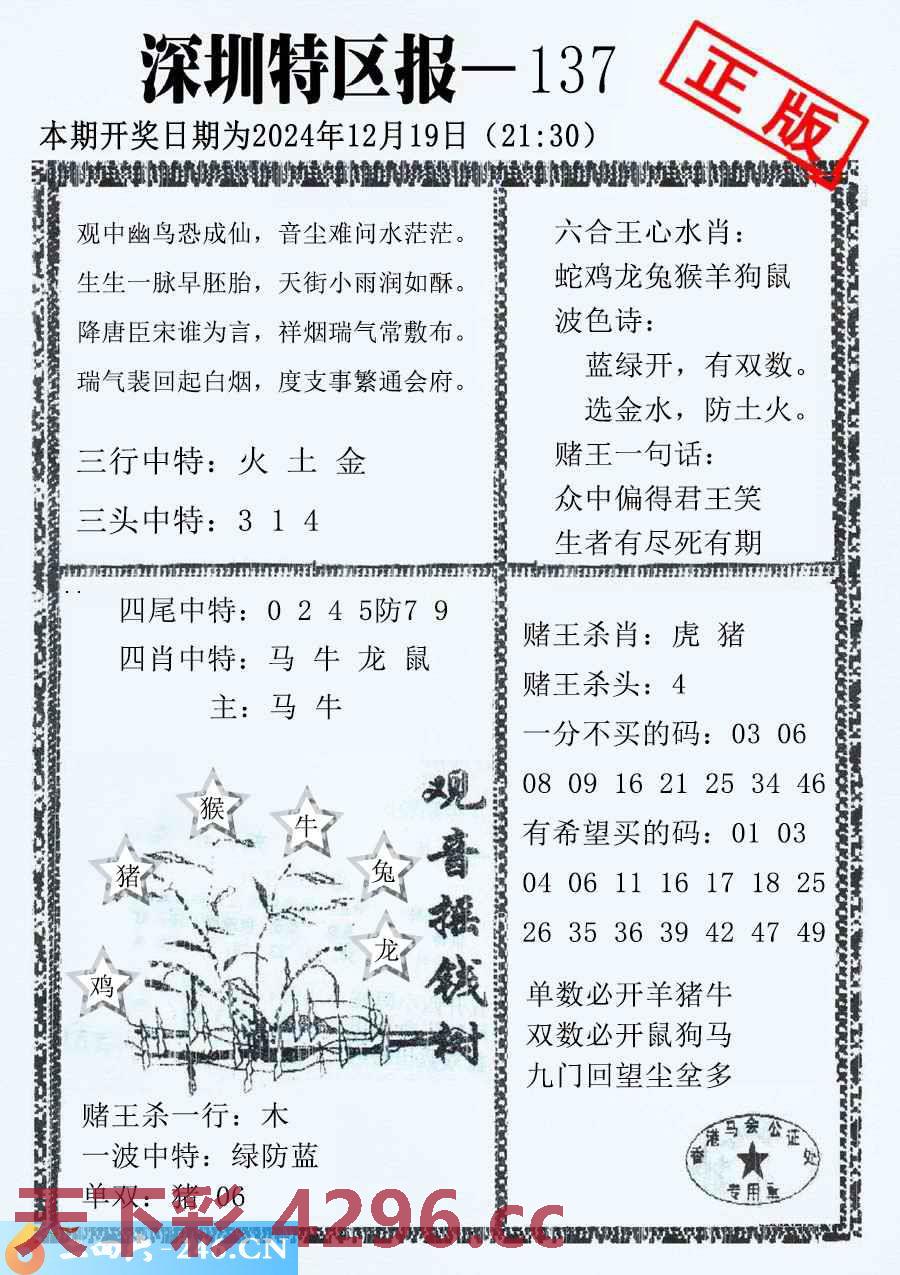 深圳特区报—137
正版
本期开奖日期为2024年12月19日（21:30）
观中幽鸟恐成仙，音尘难问水茫茫。
生生一脉早胚胎，天街小雨润如酥。
降唐臣宋谁为言，祥烟瑞气常敷布。
瑞气裴回起白烟，度支事繁通会府。
三行中特：火 土 金
三头中特：3 1 4
六合王心水肖：
蛇鸡龙兔猴羊狗鼠
波色诗：
蓝绿开，有双数。
选金水，防土火。
赌王一句话：
众中偏得君王笑
生者有尽死有期
四尾中特：0 2 4 5防7 9
四肖中特：马 牛 龙 鼠
主：马 牛
猴
牛
猪
兔
龙
鸡
观音摇钱树
赌王杀一行：木
一波中特：绿防蓝
单双：猪 06
赌王杀肖：虎 猪
赌王杀头：4
一分不买的码：03 06
08 09 16 21 25 34 46
有希望买的码：01 03
04 06 11 16 17 18 25
26 35 36 39 42 47 49
单数必开羊猪牛
双数必开鼠狗马
九门回望尘坌多
香港马会公证处
专用章
天下彩4296.cc
246.CN